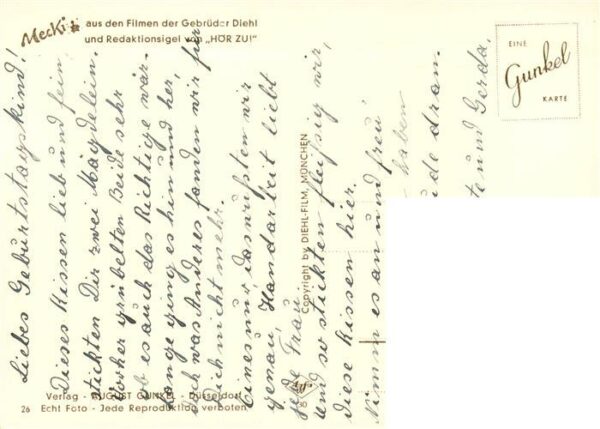 Mecki
aus den Filmen der Gebrüder Diehl
und Redaktionsigel von „HÖR ZU!"
EINE
Gunkel
KARTE
Liebes Geburtstagskind!
Dieses Kissen lieb und fein
stickten Dir zwei Mägdelein.
Vorher grübelten Beide sehr
ob es auch das Richtige wär.
Lange ging es hin und her,
doch was Anderes fanden wir für
Dich nicht mehr.
Eines nur, das wußten wir
genau, Handarbeit liebt
jede Frau.
Und so stickten fleißig wir,
diese Kissen hier.
Nimm es an und freu'
haben
de dran.
te und Gerda.
Copyright by DIEHL-FILM, MÜNCHEN
Verlag - AUGUST GUNKEL - Düsseldorf
26 Echt Foto - Jede Reproduktion verboten
30